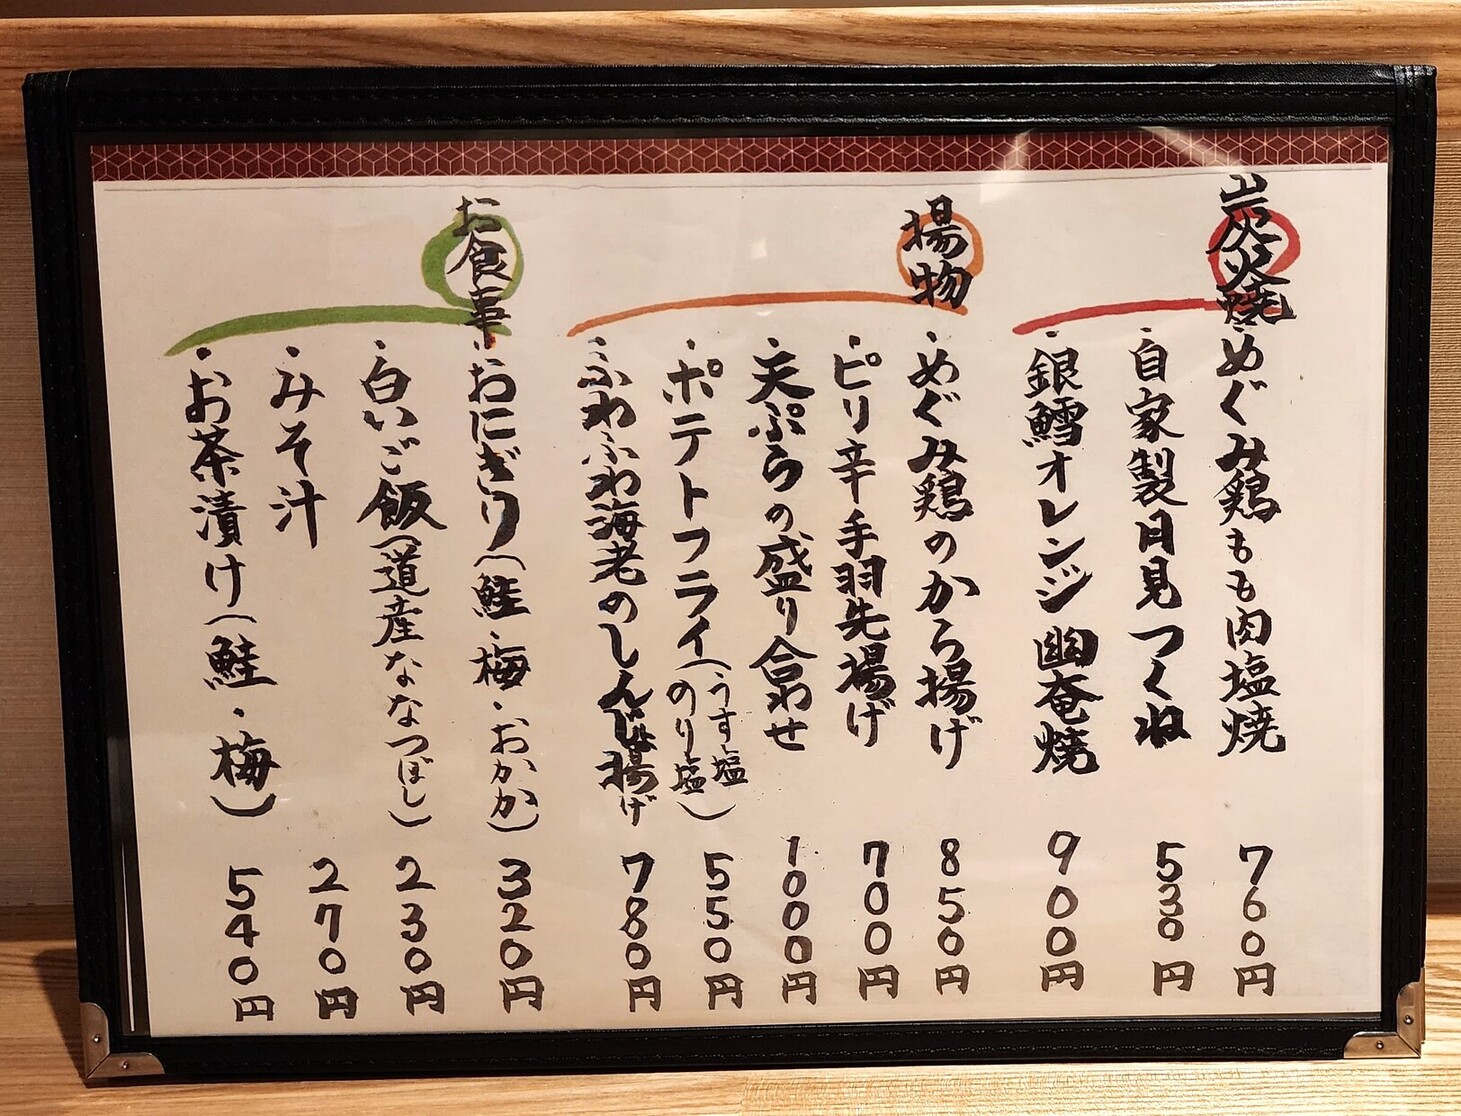 炭火焼
・めぐみ鶏もも肉塩焼 760円
・自家製月見つくね 530円
・銀鱈オレンジ幽奄焼 900円
揚物
・めぐみ鶏のから揚げ 850円
・ピリ辛手羽先揚げ 700円
・天ぷらの盛り合わせ 1000円
・ポテトフライ(うす塩 のり塩) 550円
・ふわふわ海老のしんじょ揚げ 780円
お食事
・おにぎり(鮭・梅・おかか) 320円
・白いご飯(道産ななつぼし) 230円
・みそ汁 270円
・お茶漬け(鮭・梅) 540円